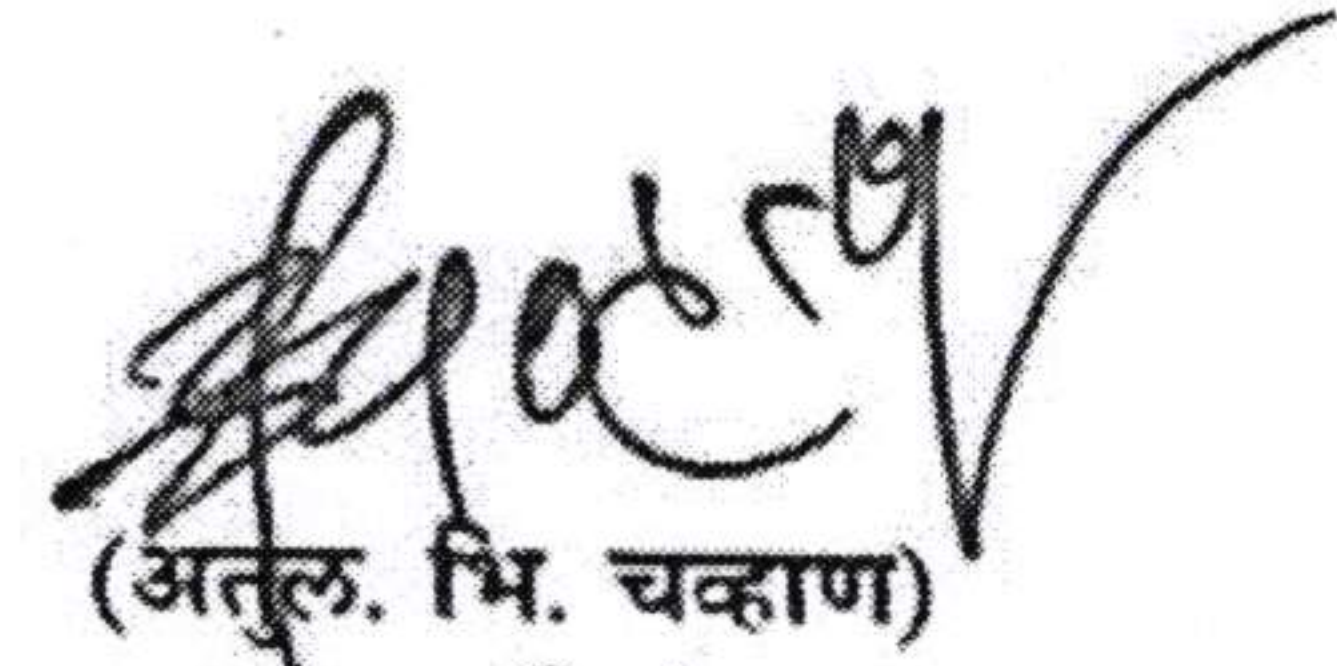 (अतुल. भि. चव्हाण)